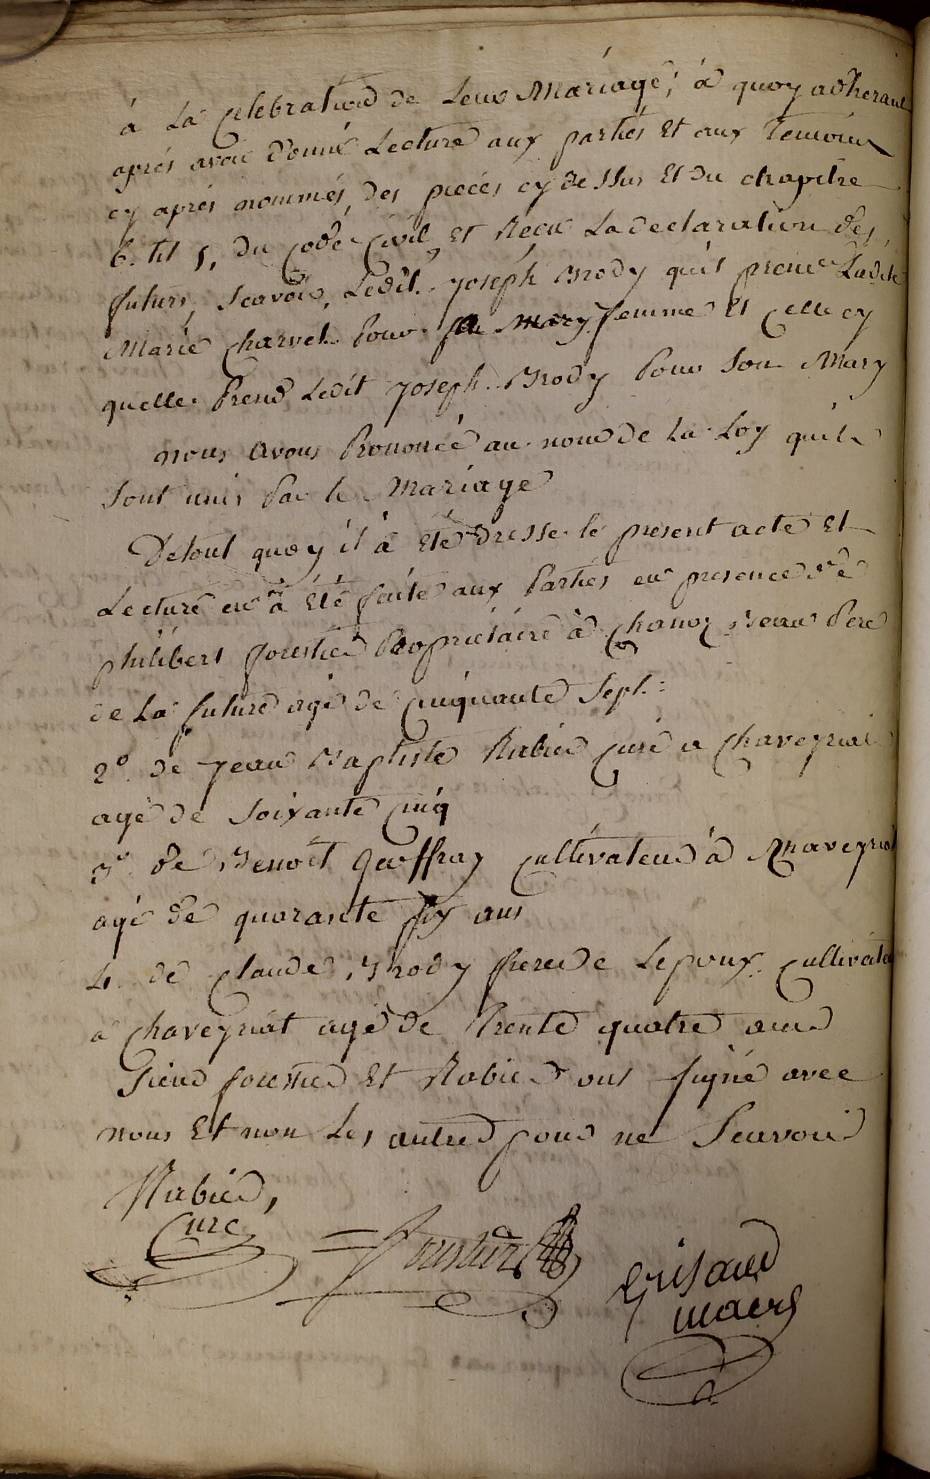 à La Celebration de Leur Mariage, à quoy adherant
après avoir donné Lecture aux partiés et aux Temoins
cy après nommés, des piecés cy dessus Et du chapitre
6. tit 5, du Code Civil, Et Recu La declaration des
futurs, Scavoir, Ledit Joseph Brody qu'il prend Ladite
Marie Charvet Pour sa femme Et Celle cy
quelle Prend Ledit Joseph Brody Pour Son Mary
nous avons Prononcé au nom de La Loy qu'ils
Sont unis Par le Mariage
De tout quoy il à été Dressé le present acte Et
Lecture en à été faite aux Parties en presence de
philibert forestier Propriétaire à Chanoz Beau Pere
de La future agé de Cinquante Sept
2° de Jean Baptiste Rabier Curé a Chaveyriat
agé de Soixante Cinq
3° de Benoît Geoffray Cultivateur à Chaveyriat
agé de quarante six ans
4. de Claude Brody frere de Lepoux Cultivateur
à Chaveyriat agé de trente quatre ans
Sieur forestier Et Rabier ont signé avec
nous Et non Les autres pour ne Scavoir
Rabier,
Curé
forestier
Grisard
maire